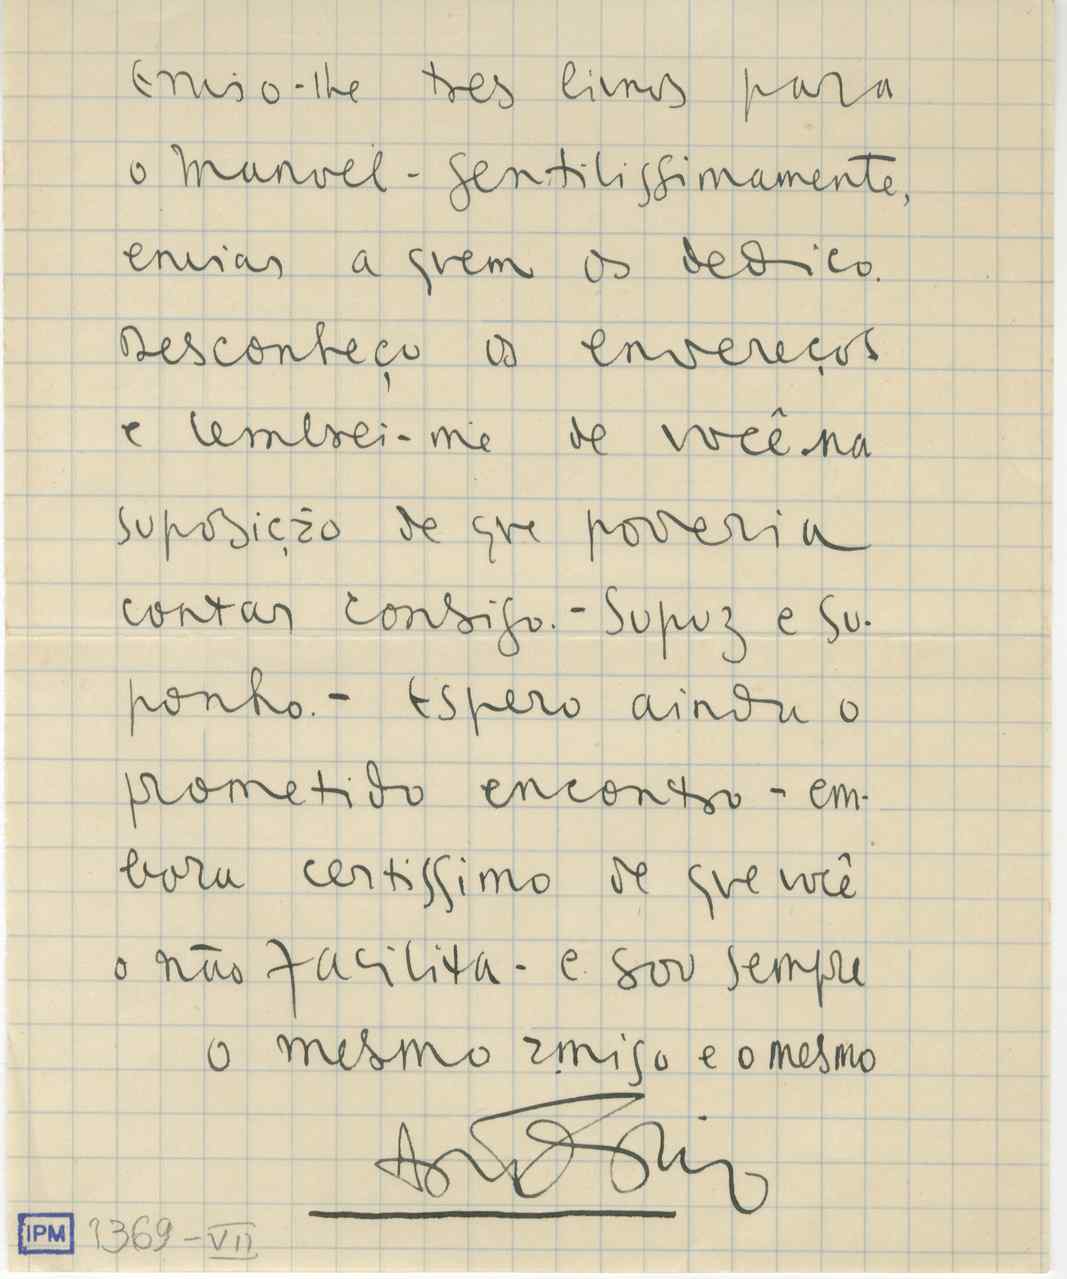 Envio-lhe tres livros para
o Manoel - gentilissimamente,
enviar a quem os dedico.
Desconheço os endereços
e lembrei-me de você na
suposição de que poderia
contar consigo. - Supuz e su-
ponho. - Espero ainda o
prometido encontro - em-
bora certissimo de que você
o não facilita - e sou sempre
o mesmo amigo e o mesmo
IPM 1369-VII